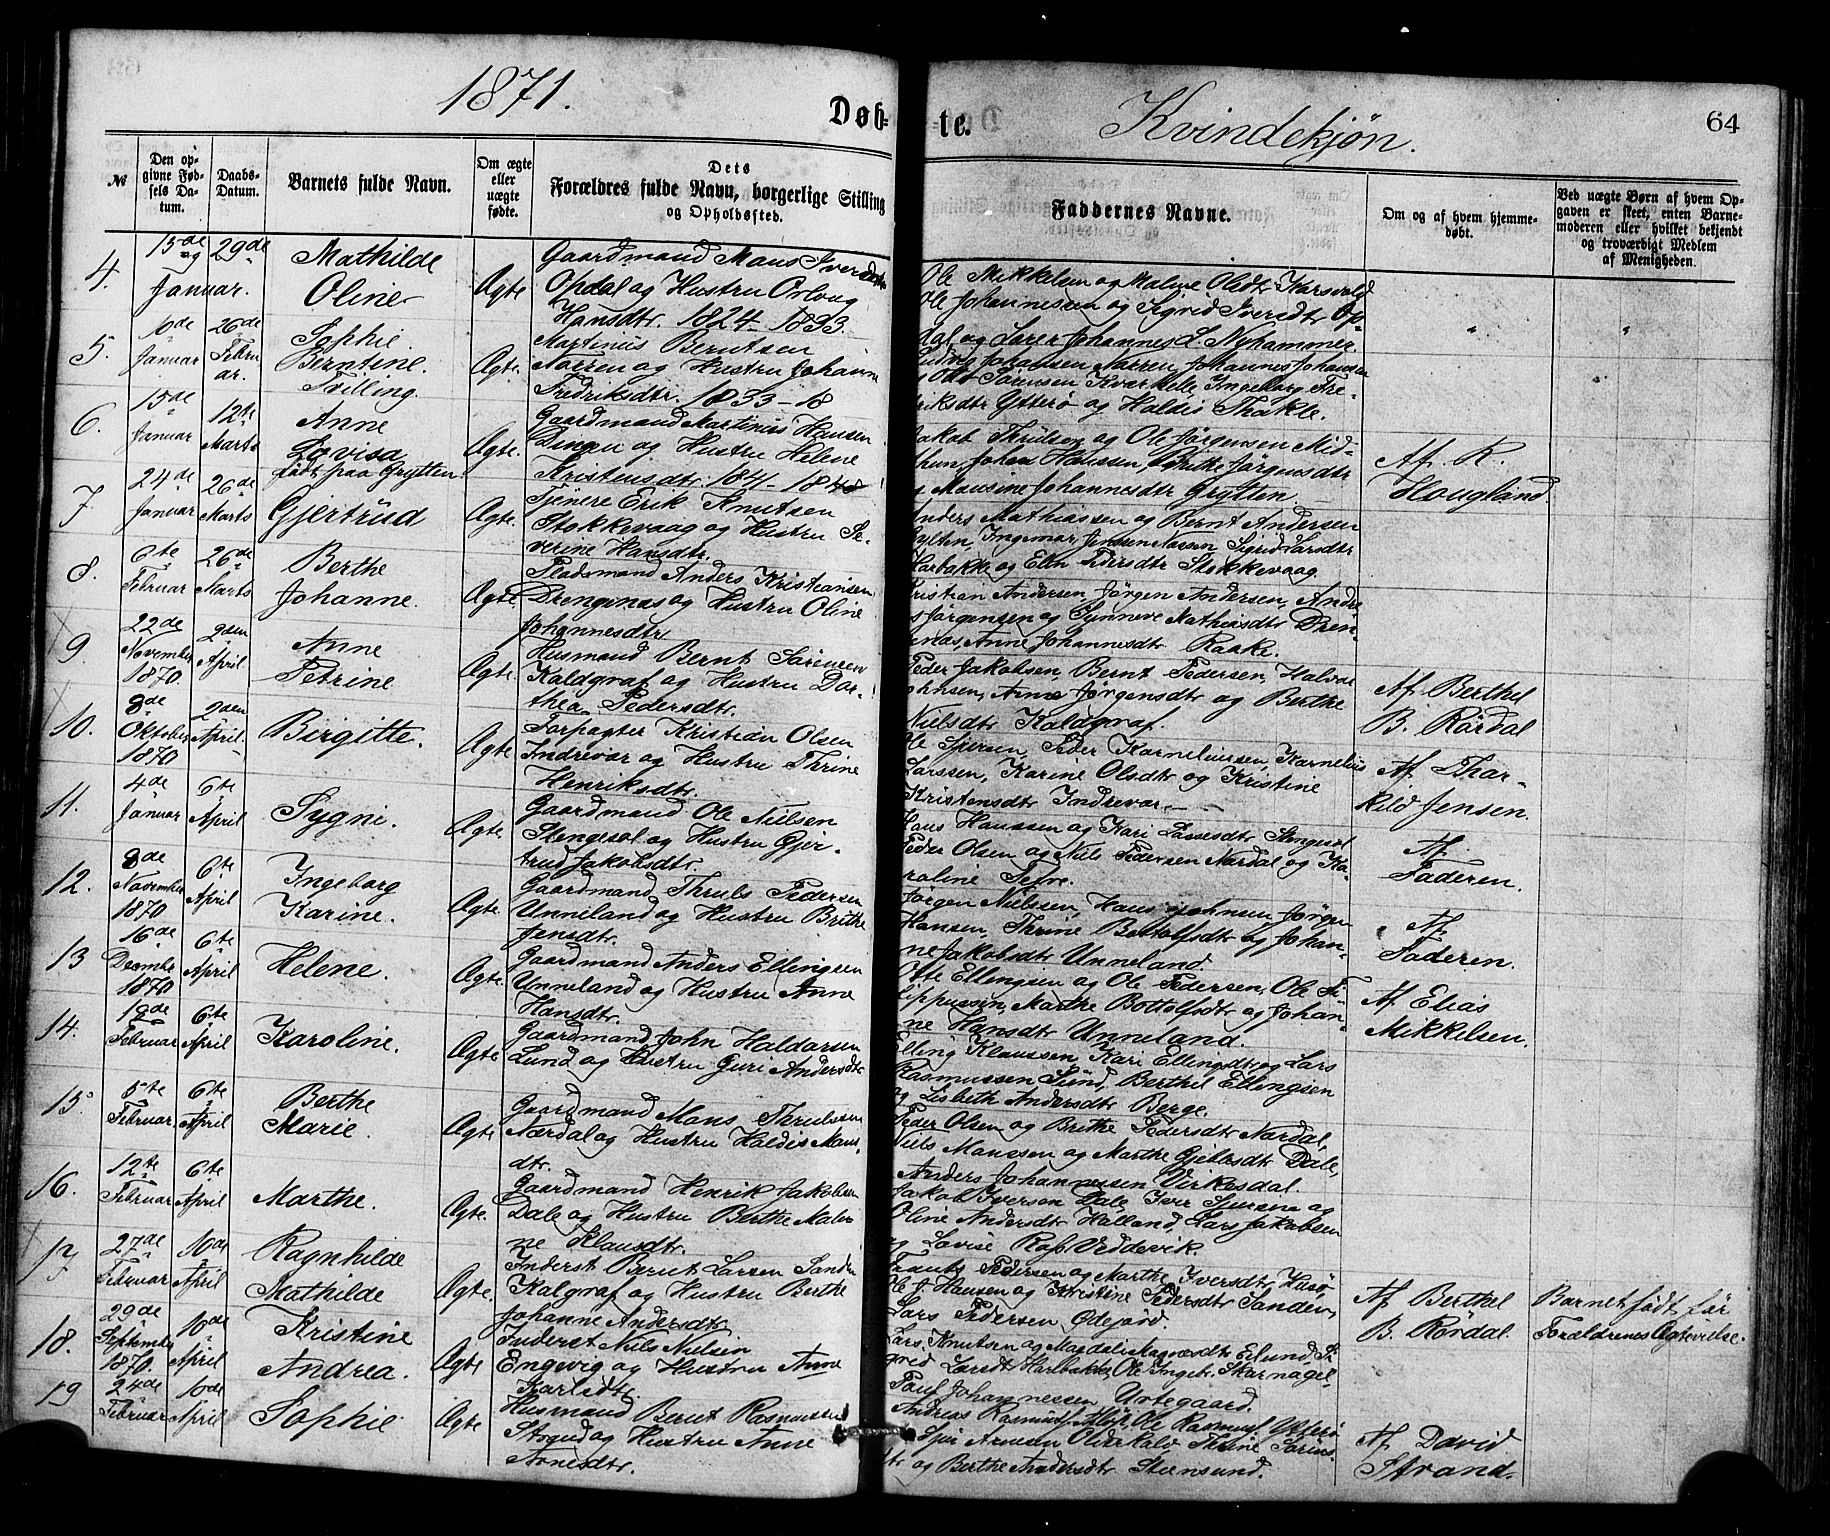 1871.
Døb-
te.
Kvindekjøn.
64
№
Den op-
givne Fød-
sels Da-
tum.
Daabs-
Datum.
Barnets fulde Navn.
Om ægte
eller
uægte
fødte.
Dets
Forældres fulde Navn, borgerlige Stilling
og Opholdssted.
Faddernes Navne.
Om og af hvem hjemme-
døbt.
Ved uægte Børn af hvem Op-
gaven er skeet, enten Barne-
moderen eller hvilket bekjendt
og troværdigt Medlem
af Menigheden.
4.
15de
Januar.
29de
Mathilde
Oline
Ægte
Gaardmand Mans Iversen
Opdal og Hustru Orlaug
Hansdtr. 1824 - 1833
Ole Mikkelsen og Maline Olsdtr Karsvold
Ole Johannesen og Sigrid Iversdtr Op-
dal og Lærer Johannes L. Nyhammer
5.
Januar
26de
Febru
ar.
Sophie
Berntine
Tvilling.
Ægte.
Martinus Berntsen
Nærren og Hustru Johanne
Fredriksdtr. 1833 - 18
Ludvig Johansen Nærren Johannes Johansen
Ole Sørensen Kværkele Ingeborg Fre-
driksdtr Ytterø og Haldis Thakle.
6.
15de
Januar
12te
Marts
Anne
Lovisa
født paa Grytten
Ægte.
Gaardmand Martinus Hansen
Dingen og Hustru Helene
Kristensdtr. 1841 - 1848
Jakob Thrulsen og Ole Jørgensen Mid-
thun, Johan Hanssen, Brithe Jørgensdtr
og Mansine Johannesdtr Grytten
Af K.
Hougland
7
24de
Januar
26de
Marts
Gjertrud
Ægte.
Tjenere Erik Knutsen
Stokkevaag og Hustru Se-
verine Hansdtr.
Anders Mathiassen og Bernt Andersen
Gylten, Ingemar Jenssen Nessen, Sigrid Larsdtr
Harbakke og Elen Pedersdtr Stokkevaag
8.
6te
Februar
26de
Marts
Berthe
Johanne.
Ægte
Pladsmand Anders Kristiansen
Drengenes og Hustru Oline
Johannesdtr
Kristian Andersen, Jørgen Andersen, Andre
as Jørgensen og Synneve Mathiasdtr Dren-
genæs, Anne Johannesdtr Raake.
9
22de
November
1870.
2den
April
Anne
Petrine
Ægte.
Husmand Bernt Sørensen
Kaldgraf og Hustru Dor-
thea Pedersdtr.
Peder Jakobsen, Bernt Pedersen, Halvor
Johnsen, Anne Jørgensdtr og Berthe
Nielsdtr Kaldgraf.
Af Berthel
B. Rørdal
10.
8de
Oktober
1870
2den
April.
Birgitte.
Ægte
Forpagter Kristian Olsen
Indrevær og Hustru Thrine
Henriksdtr.
Ole Sjursen, Peder Karneliussen, Karnelius
Larssen, Karine Olsdtr og Kristine
Kristensdtr Indrevær.
Af Thor-
kild Jensen.
11.
4de
Januar
6te
April
Sygni.
Ægte.
Gaardmand Ole Nielsen
Stengesøl og Hustru Gjer-
trud Jakobsdtr.
Hans Hanssen og Kari Lassesdtr Stengesøl
Peder Olsen og Niels Pedersen Nærdal og Ka-
roline Sefre.
Af
Faderen.
12.
8de
November
1870
6te
April
Ingeborg
Karine.
Ægte.
Gaardmand Thruls Pedersen
Unneland og Hustru Brithe
Jensdtr.
Jørgen Nielssen, Hans Johnsen, Jørgen
Hansen, Thrine Bottolfsdtr og Johan-
ne Jakobsdtr Unneland.
Af
Faderen.
13
16de
Decmbe
1870
6te
April
Helene.
Ægte.
Gaardmand Anders Ellingsen
Unneland og Hustru Anne
Hansdtr.
Otte Ellingsen og Ole Pedersen, Ole Fi-
lippussen, Marthe Bottolfsdtr og Johan-
ne Hansdtr Unneland.
Af Elias
Mikkelsen.
14.
19de
Februar
6te
April
Karoline.
Ægte
Gaardmand John Haldorsen
Lund og Hustru Guri Andersdtr
Elling Klaussen, Kari Ellingsdtr og Lars
Rasmussen Lund, Berthel Ellingsen
og Lisbeth Andersdtr Berge.
15
5te
Februar.
6te
April
Berthe
Marie.
Ægte
Gaardmand Mons Thrulsen
Nærdal og Hustru Haldis Mons
dtr.
Peder Olsen og Brithe Pedersdtr Nærdal,
Niels Monssen og Marthe Gjeblesdtr Dale,
Anders Johannessen Virkesdal.
16.
12te
Februar
6te
April
Marthe.
Ægte.
Gaardmand Henrik Jakobsen
Dale og Hustru Berthe Mali-
ne Klausdtr.
Jakob Iversen Dale, Iver Sjursen og
Oline Andersdtr Halland, Lars Jakobsen
og Lovise Ross Veddevik.
17
27de
Februar
10de
April
Ragnhilde
Mathilde
Ægte.
Inderst Bernt Larsen Sanden
Kalgraf og Hustru Berthe
Johanne Andersdtr.
Frants Pedersen og Marthe Iversdtr Husø,
Ole J. Hansen og Kristine Pedersdtr Sanden,
Lars Pedersen Ødejord.
Af Berthel
B. Rørdal.
Barnet født før
Forældrenes Ægtevielse.
18.
29de
September
1870.
10de
April
Kristine
Andrea.
Ægte
Inderst Niels Nielsen
Engevig og Hustru Anne
Karlsdtr.
Lars Knutsen og Magdali Magnesdtr Eilund, Si-
grid Larsdt Harbakke, Ole Ingebr. Skarnagel-
Poul Johannessen Urtegaard.
19
24de
Februar
10de
April
Sophie
Ægte
Husmand Bernt Rasmussen
Strand og Hustru Anne
Arnesdtr.
Andreas Rasmuss. Ole Rasmus. Ytterø
Sjur Arnesen Olderkalv, Thrine Sørens-
dtr og Berthe Andersdtr Steensund.
Af David
Strand.